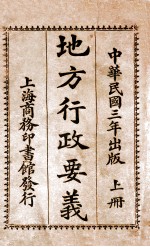 中華民國三年出版 上冊
地方行政要義
上海商務印書館發行